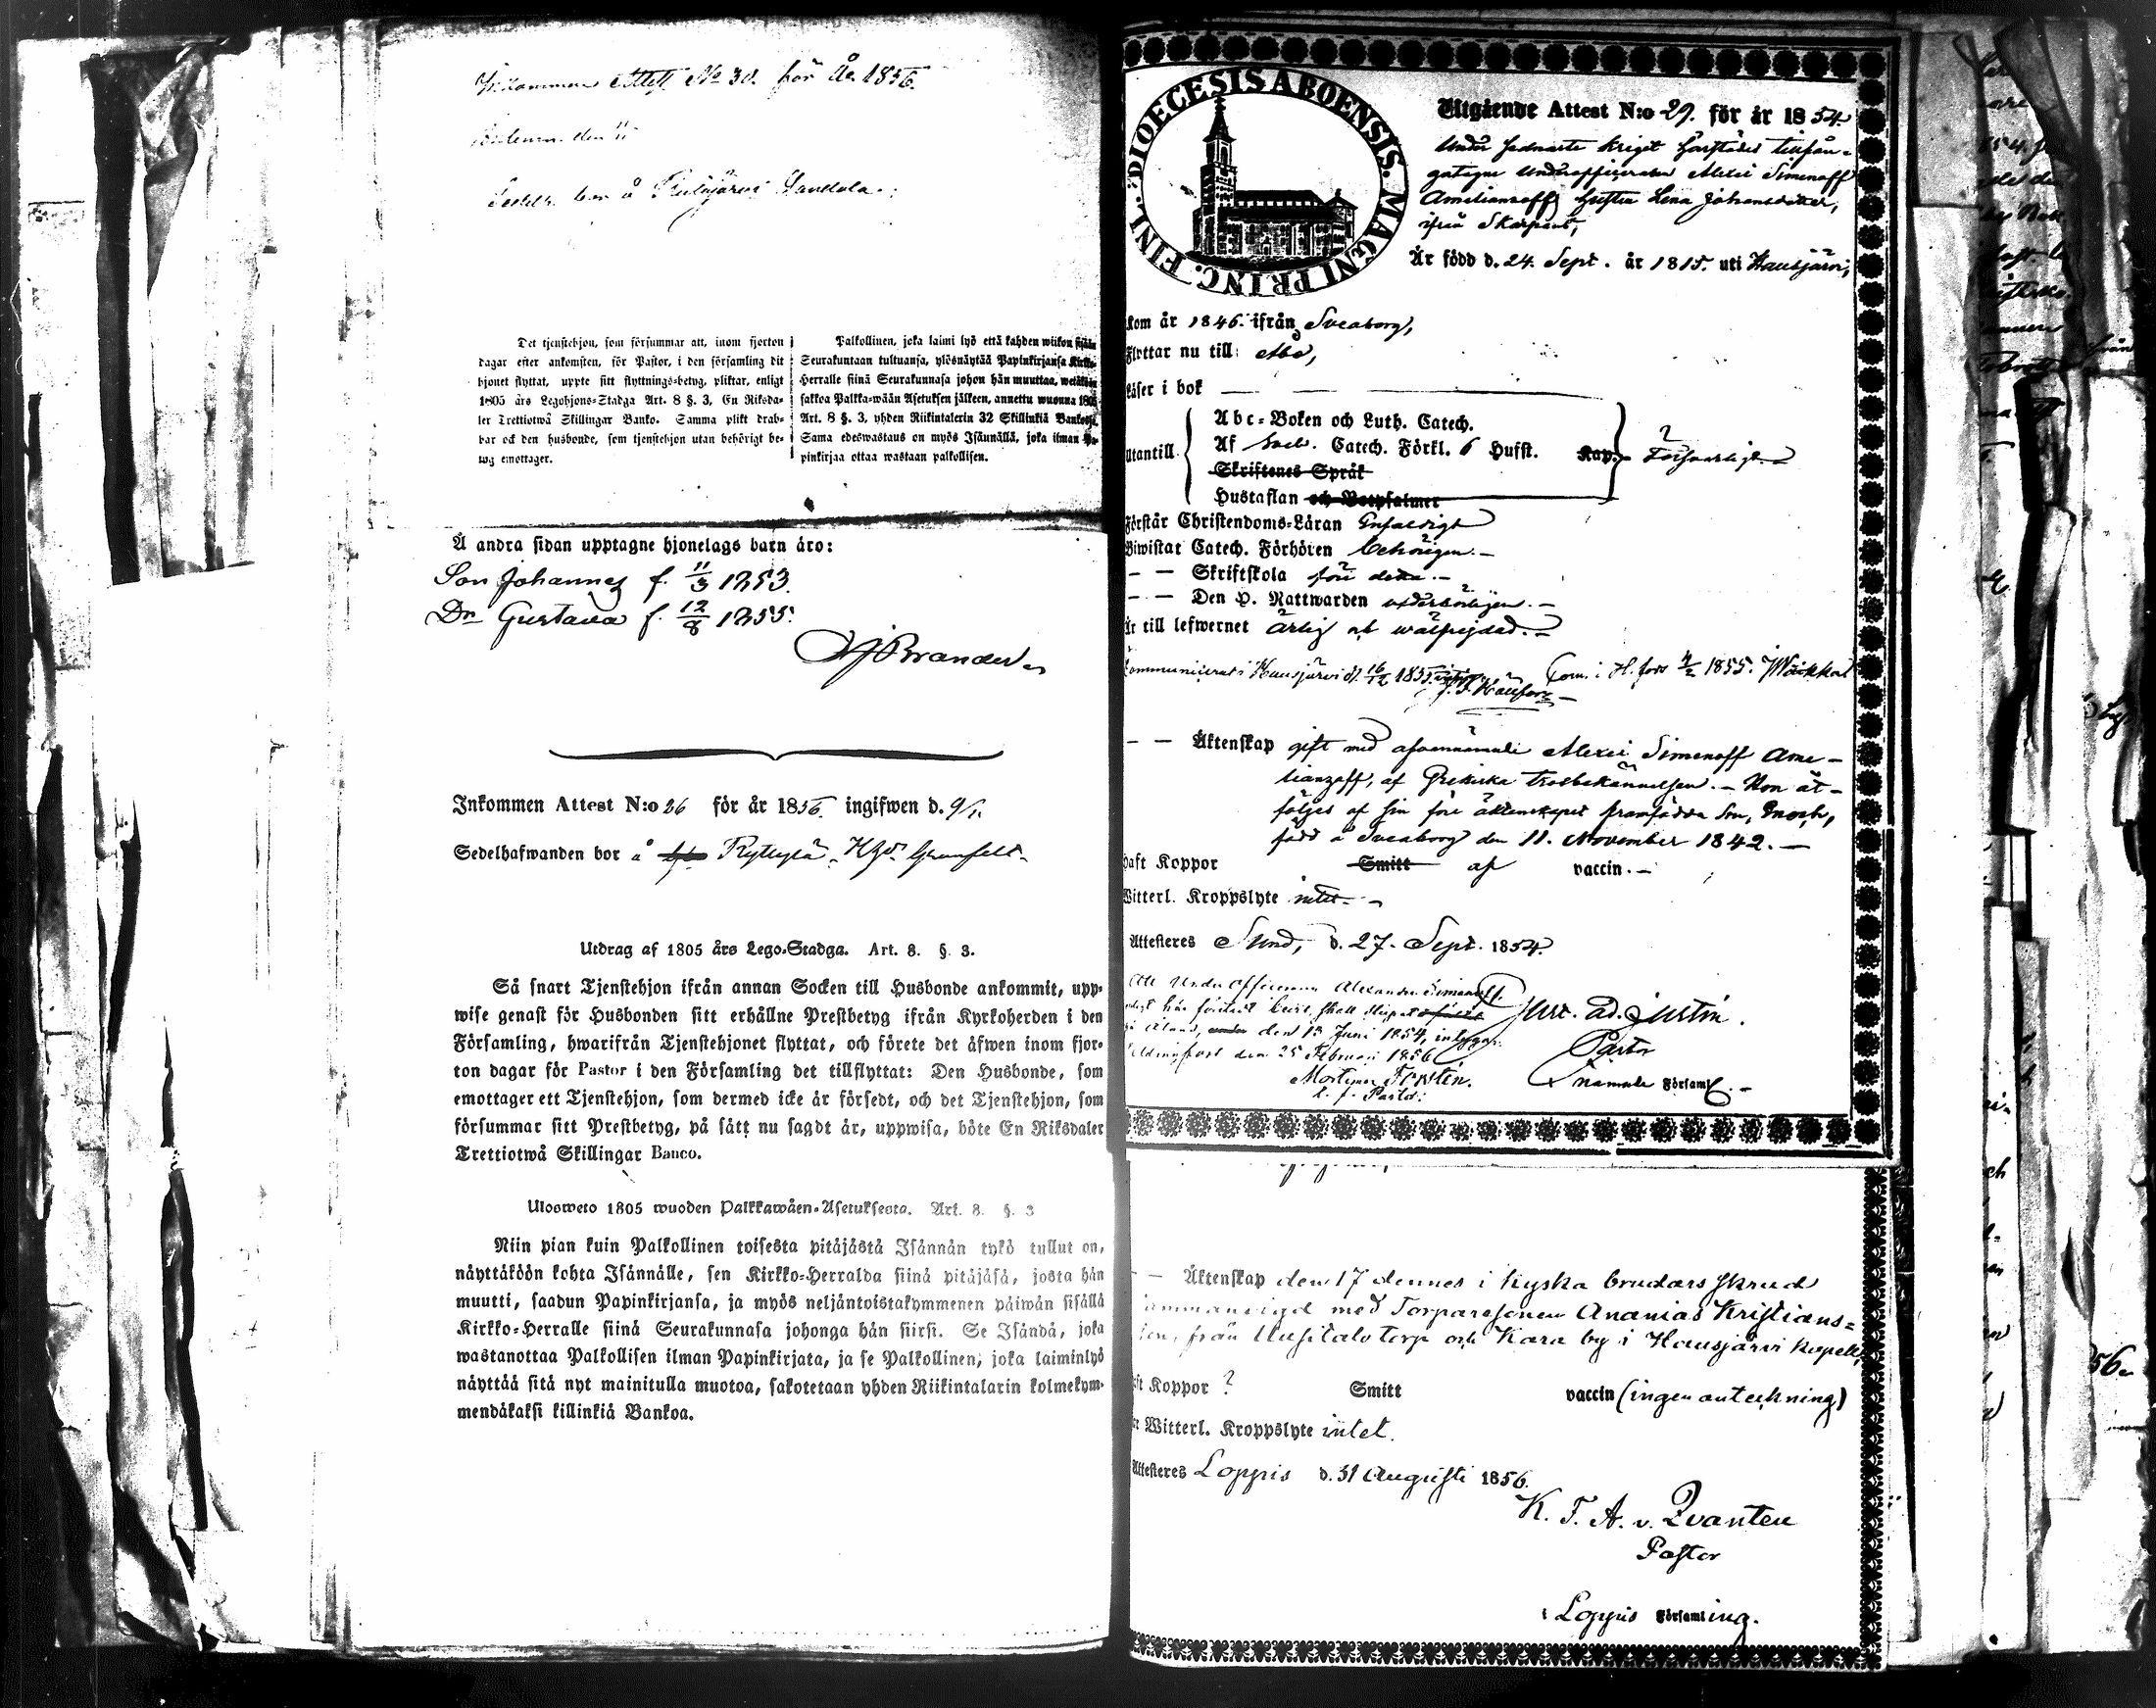 Inkommen Attest No 30. för År 1856.
den 11
Sedelh. bor å Sandola.
Det tjenstehjon, som försummar att, inom fjorton
dagar efter ankomsten, för Pastor, i den församling dit
hjonet flyttat, uppte sitt flyttnings-betyg, pliktar, enligt
1805 års Legohjons-Stadga Art. 8 §. 3, En Riksda-
ler Trettiotwå Skillingar Banko. Samma plikt drab-
bar ock den husbonde, som tjenstehjon utan behörigt be-
tyg emottager.
Palkollinen, joka laimi lyö että kahden wiikon sisään
Seurakuntaan tultuansa, ylösnäytää Papinkirjansa Kirkko-
Herralle siinä Seurakunnasa johon hän muuttaa, wetäköön
sakkoa Palkka-wään Asetuksen jälkeen, annettu wuonna 1805
Art. 8 §. 3, yhden Riikintalerin 32 Skillinkiä Bankossa.
Sama edeswastaus on myös Isäunällä, joka ilman Pa-
pinkirjaa ottaa wastaan palkollisen.
Å andra sidan upptagne hjonelags barn äro:
Son Johannes f. 11/3 1853.
Dr Gustava f. 12/8 1855.
Brander
Inkommen Attest N:o 26 för år 1856. ingifwen d. 9/1.
Sedelhafwanden bor å Ryttylä
Utdrag af 1805 års Lego-Stadga. Art. 8. §. 3.
Så snart Tjenstehjon ifrån annan Socken till Husbonde ankommit, upp-
wise genast för Husbonden sitt erhållne Prestbetyg ifrån Kyrkoherden i den
Församling, hwarifrån Tjenstehjonet flyttat, och förete det äfwen inom fjor-
ton dagar för Pastor i den Församling det tillflyttat: Den Husbonde, som
emottager ett Tjenstehjon, som dermed icke är försedt, och det Tjenstehjon, som
försummar sitt Prestbetyg, på sätt nu sagdt är, uppwisa, böte En Riksdaler
Trettiotwå Skillingar Banco.
Ulosweto 1805 wuoden Palkkawäen-Asetuksesta. Art. 8. §. 3
Niin pian kuin Palkollinen toisesta pitäjästä Isännän tykö tullut on,
näyttäköön kohta Isännälle, sen Kirkko-Herralda siinä pitäjäsä, josta hän
muutti, saadun Papinkirjansa, ja myös neljäntoistakymmenen päiwän sisällä
Kirkko-Herralle siinä Seurakunnasa johonga hän siirsi. Se Isändä, joka
wastanottaa Palkollisen ilman Papinkirjata, ja se Palkollinen, joka laiminlyö
näyttää sitä nyt mainitulla muotoa, sakotetaan yhden Riikintalarin kolmekym-
mendäkaksi killinkiä Bankoa.
DIOECESIS ABOENSIS. MAGNI PRINC. FINL.
Utgående Attest N:o 29. för år 1854.
Under sednaste kriget härstädes tillfån-
gatagne Underofficeraren Alexei Simenoff
Amelianzoffs hustru Lena Johansdotter,
ifrån Skarpans,
Är född d. 24. Sept. år 1815. uti Hausjärvi,
kom år 1846. ifrån Sveaborg,
Flyttar nu till: Åbo,
Läser i bok
utantill
Abc-Boken och Luth. Catech.
Af Sveb. Catech. Förkl. 6 Hufst. Kap. Försvarligt.
Skriftenes Språk
Hustaflan och Botpsalmer
Förstår Christendoms-Läran Enfaldigt
Biwistat Catech. Förhören behörigen.
— — Skriftskola före detta.
— — Den H. Nattwarden vederbörligen.
Är till lefwernet ärlig och wälfrejdad.
Communicerat i Hausjärvi d. 16/12 1855 Com. i H.fors 4/2 1855.
— — Äktenskap gift med ofvannämnde Alexei Simenoff Ame-
lianzoff, af Grekiska trosbekännelsen. — Hon åt-
följes af sin före äktenskapet framfödda Son, Enoch,
född å Sveaborg den 11. November 1842. —
haft Koppor Smitt af vaccin. —
Witterl. Kroppslyte intet. —
Attesteres Sund, d. 27. Sept. 1854.
Att Under officeraren Alexander Simanoff
på Åland, den 13 Juni 1854, intygar:
den 25 Februari 1856
Mortimer Forstén.
Pastor
Just. Ad. Justin.
Pastor
nämnde Församl.
— — Äktenskap den 17 dennes i kyska brudars skrud
sammanvigd med Torparesonen Ananias Kristians-
son, från Uusitalo torp och Kara by i Hausjärvi kapell,
Koppor ? Smitt vaccin (ingen anteckning)
Witterl. Kroppslyte intet.
Attesteres Loppis d. 31 Augusti 1856.
K. F. A. v. Qvanten
Pastor
i Loppis Församling.
56